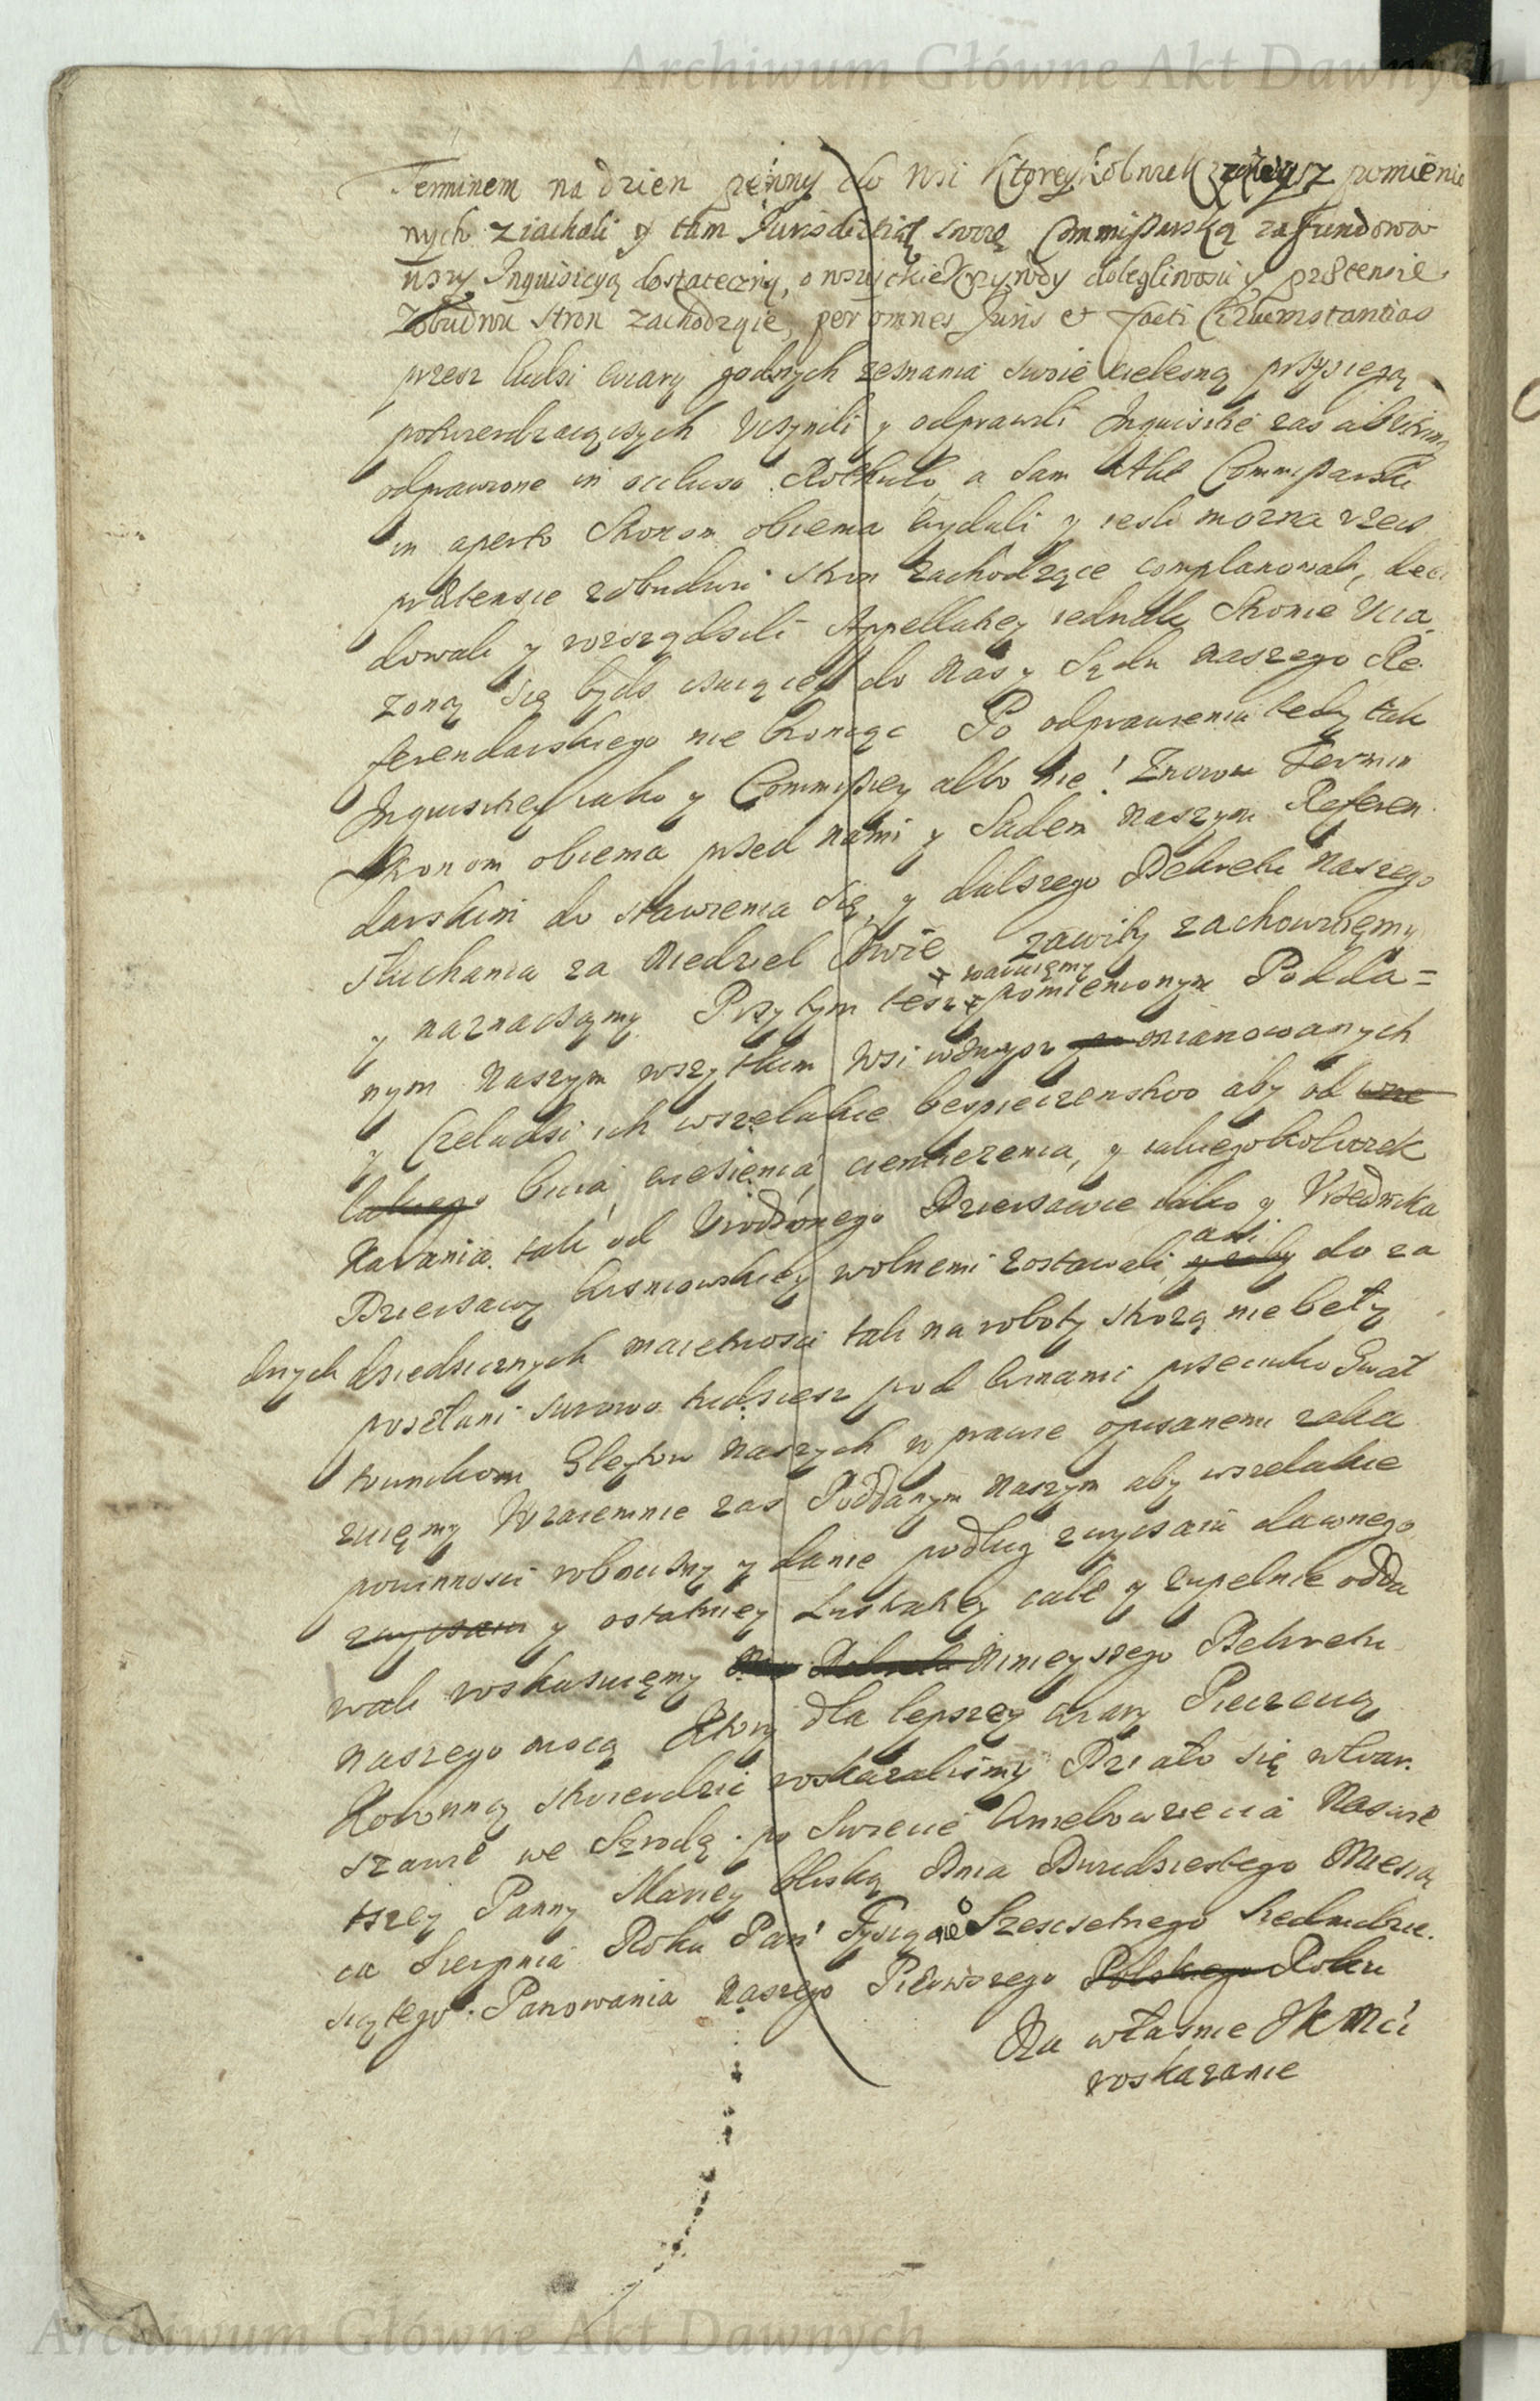 Archiwum Główne Akt Dawnych
Terminem na dzien pewny do wsi ktoreykolwiek pomienio
nych ziachali y tam Jurisdictią swoię Commissarską zafundowa
wszy Inquisicyą dostateczną, o wszystkie krzywdy dolegliwosci y praetensie
Zobudwu stron zachodzące, per omnes Juris et facti Circumstantias
przez ludzi wiary godnych zeznania swoie cielesną przysięgą
potwierdzaiących Uczynili y odprawili Inquisitie zas
odprawione in occluso Rothulo, a sam Akt Commissarski
in aperto stronom obiema wydali y iesli mozna rzecz
praetensie zobudwu stron zachodzące complanowali, deci
dowali y rozsądzili Appellatiey iednak stronie Ucią
zoną się bydz czuiącey do nas y Sądu naszego Re
ferendarskiego nie broniąc Po odprawieniu tedy tak
Inquisitiey iako y Commissiey albo nie! Znowu Termin
stronom obiema przed nami y Sądem naszym Referen
darskim do stawienia się, y dalszego Dekretu naszego
słuchania za Niedziel dwie zawity zachowuięmy
y naznaczamy Przytym tesz pomienionym Podda=
waruięmy
nym naszym wszytkim wsi mianowanych
y Czeladzi ich wszelakie bespieczenstwo aby od
bicia, wiezienia, ciemiezenia, y iakiegokolwiek
Karania tak od Urodzonego Dzierzawce iako y Urzednika
Dzierzawy wolnemi zostawali, do za
ani
dnych dziedzicznych maietnosci tak na roboty strozą nie były
posełani surowo tudziesz pod winami przeciwko Gwał
townikom Gleytow naszych w prawie opisanemi zaka
zuięmy Wzaiemnie zas Poddanym naszym aby wszelakie
powinnosci robocizny y danie podług zwyczaiu dawnego
zwyczaiu y ostatniey Lustratiey cale y zupelnie odda
wali roskazuięmy Ninieyszego Dekretu
naszego mocą Ktory dla lepszey wiary Pieczęcią
Koronną stwierdzic roskazalismy Działo się w War
szawie we Szrodę po Swiecie Wniebowzięcia Naswię
tszey Panny Mariey bliską Dnia Dwudziestego Miesią
ca Sierpnia Roku Pan' Tysiąc Szescsetnego Siedmdzie
siątego Panowania naszego Pierwszego Polskiego Roku
Na własne JKMci
roskazanie
Archiwum Główne Akt Dawnych